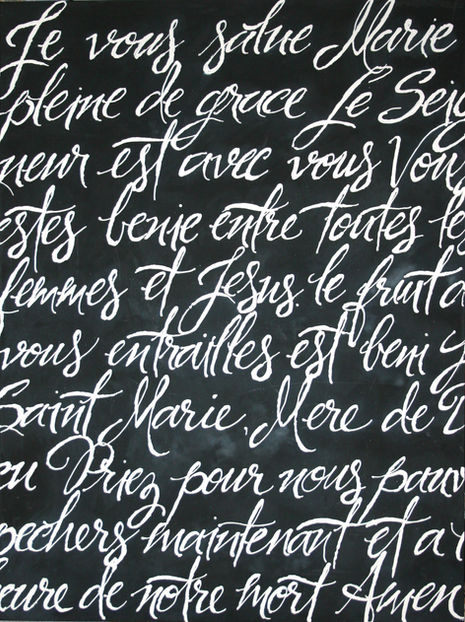 Je vous salue Marie
pleine de grace Le Seig
neur est avec vous Vou
estes benie entre toutes le
femmes et Jesus. le fruit d
vous entrailles est beni
Saint Marie, Mere de D
eu Priez pour nous pauv
pechers maintenant et a
heure de notre mort Amen